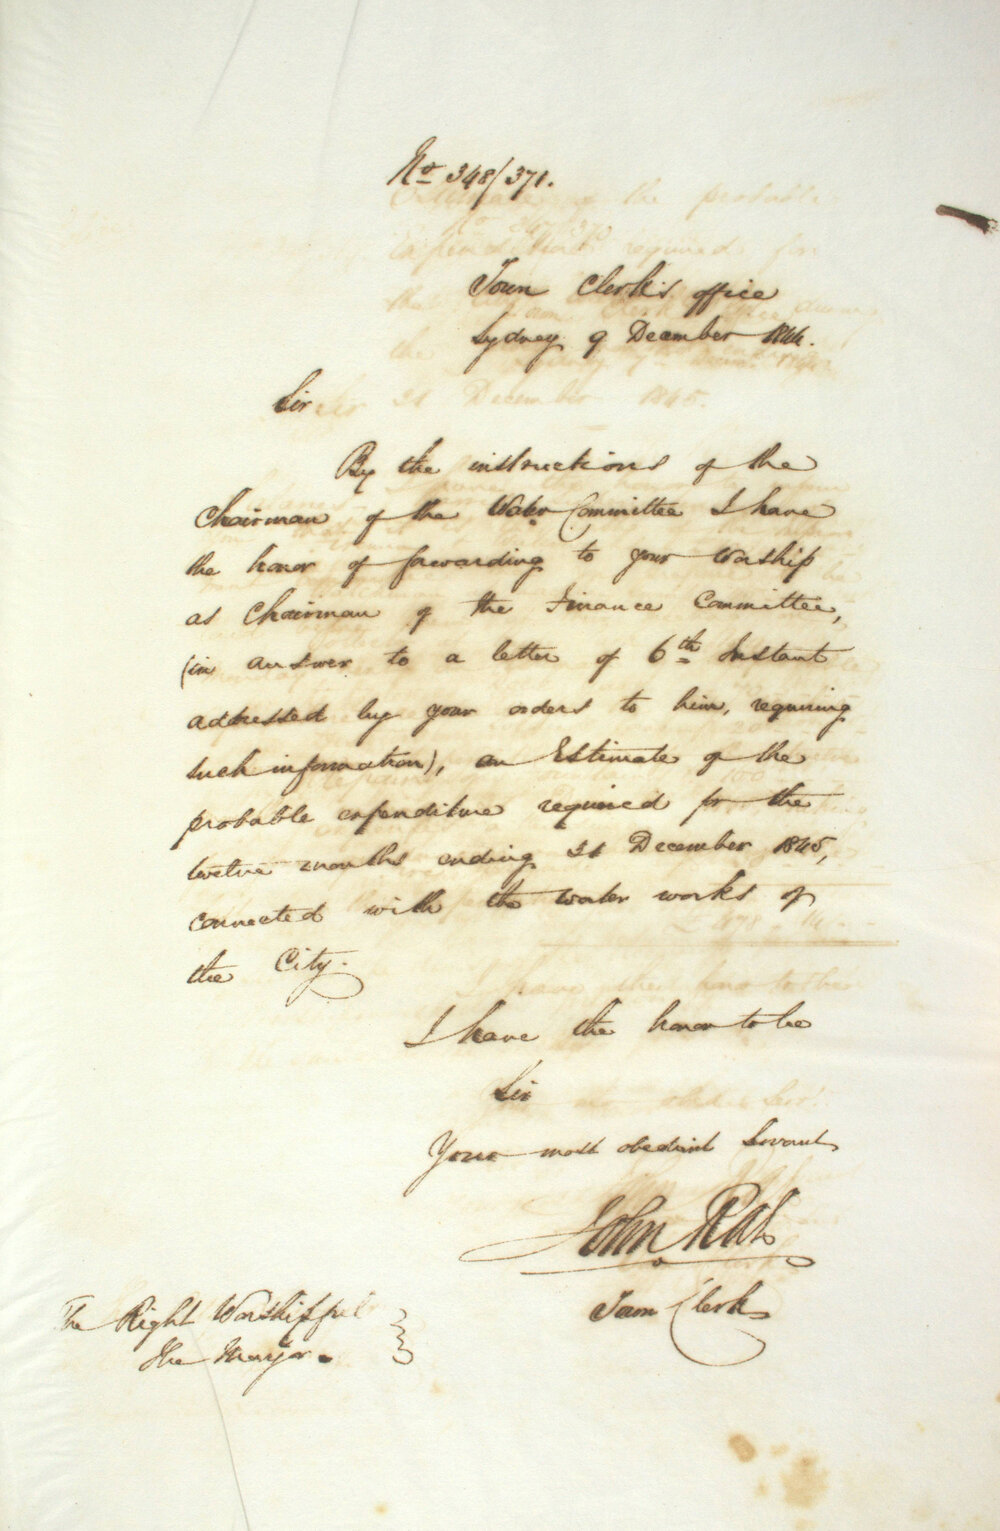 No 348/371.
Town Clerk's office
Sydney 9 December 1844.
Sir
By the instructions of the
Chairman of the Water Committee I have
the honor of forwarding to your Worship
as Chairman of the Finance Committee,
(in answer to a letter of 6th Instant
addressed by your orders to him, requiring
such information), an Estimate of the
probable expenditure required for the
twelve months ending 31 December 1845,
connected with the water works of
the City.
I have the honor to be
Sir
Your most obedient Servant
John Rae
Town Clerk
The Right Worshipful
The Mayor.